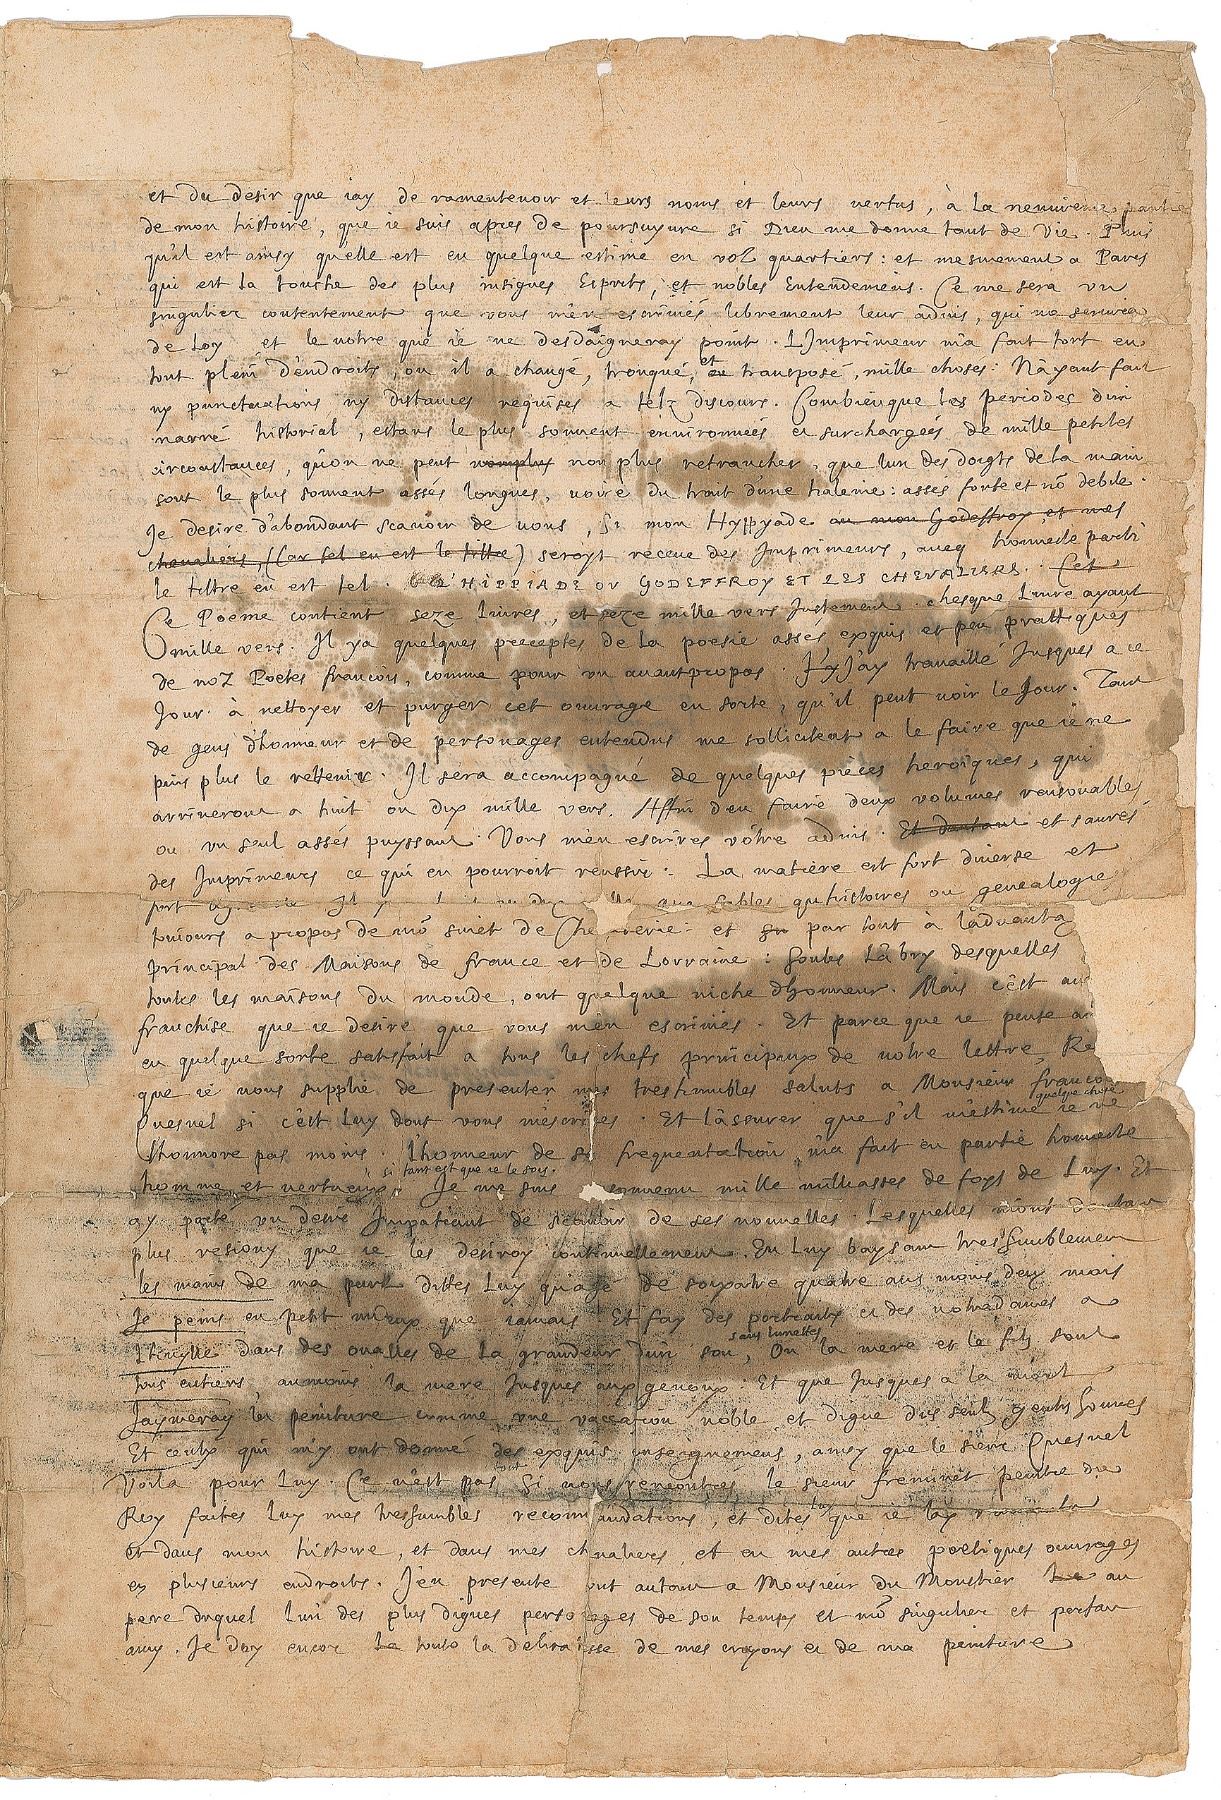 et du desir que iay de ramentevoir et leurs noms et leurs vertus, à La neuuieme partie
de mon histoire, que ie suis apres de poursuyure si Dieu me donne tant de Vie. Puis
qu'il est ainsy qu'elle est en quelque estime en voz quartiers: et mesmement a Paris
qui est La touche des plus insignes Esprits, et nobles Entendemens. Ce me sera vn
singulier contentement que vous m'en escriuiés librement leur aduis, qui me seruira
de Loy et le votre que ie ne desdaigneray point. L'Imprimeur m'a fait tort en
tout plein d'endroits, ou il a changé, tronqué, et transposé, mille choses: N'ayant fait
ny punctuations ny distances requises a telz discours. Combienque les periodes d'un
narré historial, estans le plus souuent enuironnées et surchargées de mille petites
circonstances, qu'on ne peut non plus retrancher, que l'un des doigts de la main
sont le plus souuent assés longues, voire du trait d'une halenie: assés forte et nõ debile.
Je desire d'abondant scauoir de vous, si mon Hyppyade ou mon Godeffroy, et mes
cheualiers, (Car tel en est le tiltre) seroyt receue des Imprimeurs, aueq honneste parti
le tiltre en est tel. L'HIPPIADE OV GODEFFROY ET LES CHEVALIERS. Cet
Ce Poeme contient seze Liures, et seze mille vers Justement. chesque Liure ayant
mille vers. Il y a quelques preceptes de La poesie assés exquis et peu prattiqués
de noz Poetes françois, comme pour vn auantpropos. J'ay trauaillé Jusques a ce
Jour à nettoyer et purger cet ouurage en sorte, qu'il peut voir le Jour. Tant
de gens d'honneur et de personages entendus me sollicitent a le faire que ie ne
puis plus le rettenir. Il sera accompagné de quelques pièces heroïques, qui
arriueront a huit ou dix mille vers. Affin d'en faire deux volumes raisonables
ou vn seul assés puyssant. Vous m'en escrires vôtre aduis. Et dautant et saurés
des Imprimeurs ce qui en pourroit reussir. La matière est fort diuerse et
fort Il y fables qu'histoires ou genealogie
toujours a propos de mõ suiet de et par tout à l'aduanta
principal des Maisons de france et de Lorraine: soubs L'abry desquelles
toutes les maisons du monde, ont quelque niche d'honneur. Mais c'est au
franchise que ie desire que vous m'en escriuiés. Et parce que ie pense a
en quelque sorte satisfait a tous les chefs principaux de votre lettre, Re
que ie vous supplie de presenter mes treshumbles saluts a Monsieur franco
Quesnel si c'est Luy dont vous m'escriues. Et l'assurer que s'il m'estime quelque chose ie ne
l'honnore pas moins. L'honneur de sa frequentation m'a fait en partie honneste
homme et vertueux, si tant est que ie le sois. Je me suis mille milliasses de foys de Luy. Et
ay porté vn desir Impatient de scauoir de ses nouuelles. Lesquelles m'ont dautan
plus resiouy que ie les desiroy continuellement. En Luy baysant tres humblement
les mains de ma part dittes Luy qu'agé de soyxante quatre ans moins deux mois
Je peins en petit mieux que iamais. Et fay des portraits et des notredames a
L'huylle dans des oualles de La grandeur d'un sou, sans lunettes Ou la mere et le filz sont
tous entiers, aumoins la mere Jusques aux genoux. Et que Jusques a la mort
J'aymeray la peinture comme vne vaccation noble et digne des seulz gentilshomes
Et ceulx qui m'y ont donné des exquis enseignemens, ainsy que le sieur Quesnel
Voila pour Luy. Ce n'est pas tout Si vous rencontrés le sieur freminet peintre du
Roy faites Luy mes treshumbles recommandations, et dites Luy que ie l'ay
et dans mon histoire, et dans mes cheualiers, et en mes autres poetiques ouurages
en plusieurs endroits. J'en presente tout autant a Monsieur du Monstier au
pere duquel l'un des plus dignes personages de son temps et mõ singulier et parfait
amy. Je doy encor toute la delicatesse de mes crayons et de ma peinture